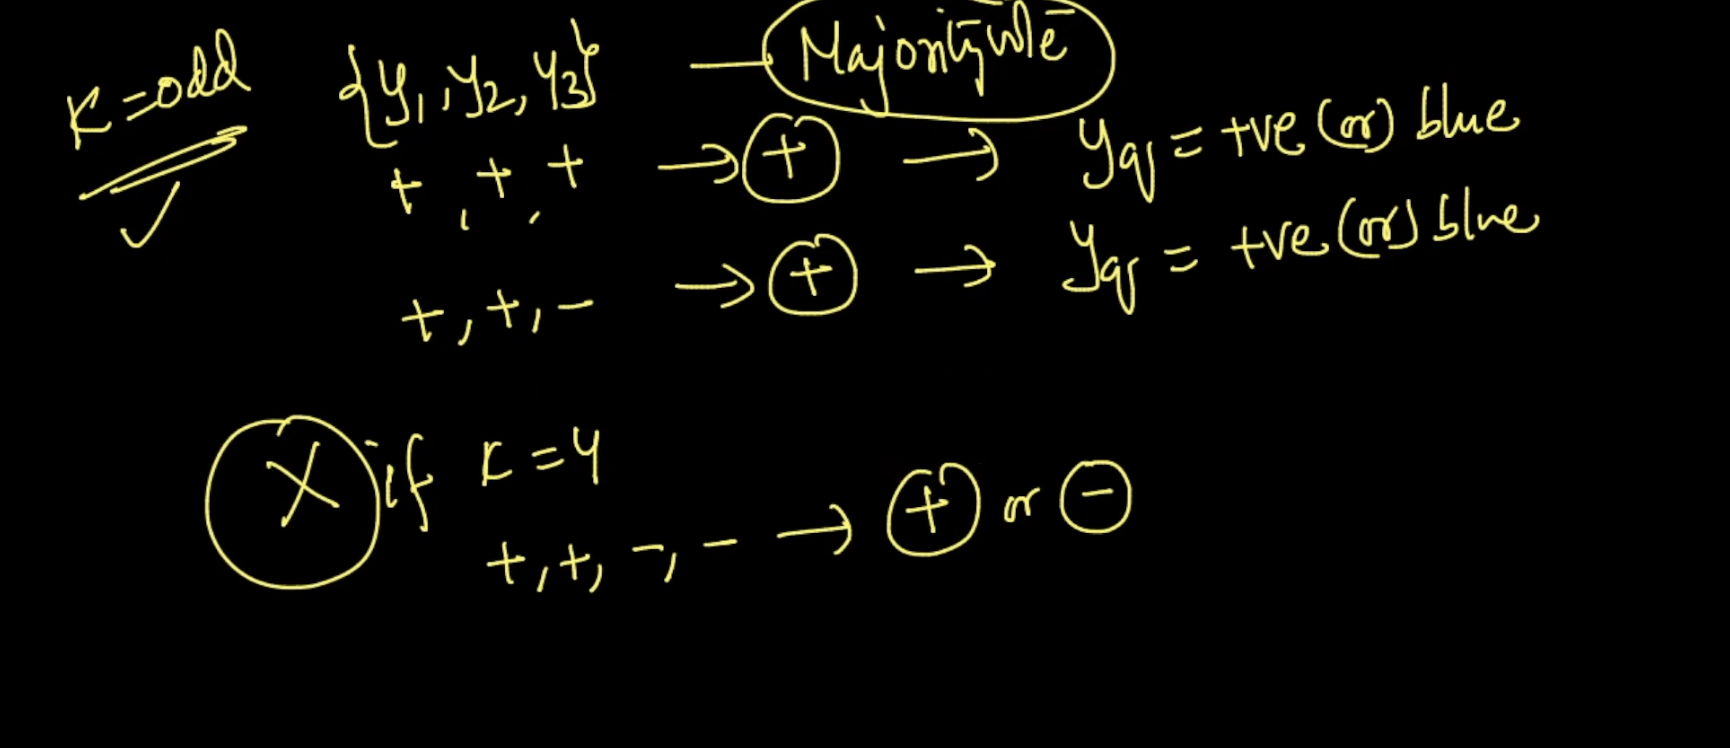 K=odd {y1, y2, y3} — Majority vote
+, +, + → + → yq = +ve (or) blue
+, +, - → + → yq = +ve (or) blue
X if K=4
+, +, -, - → + or -